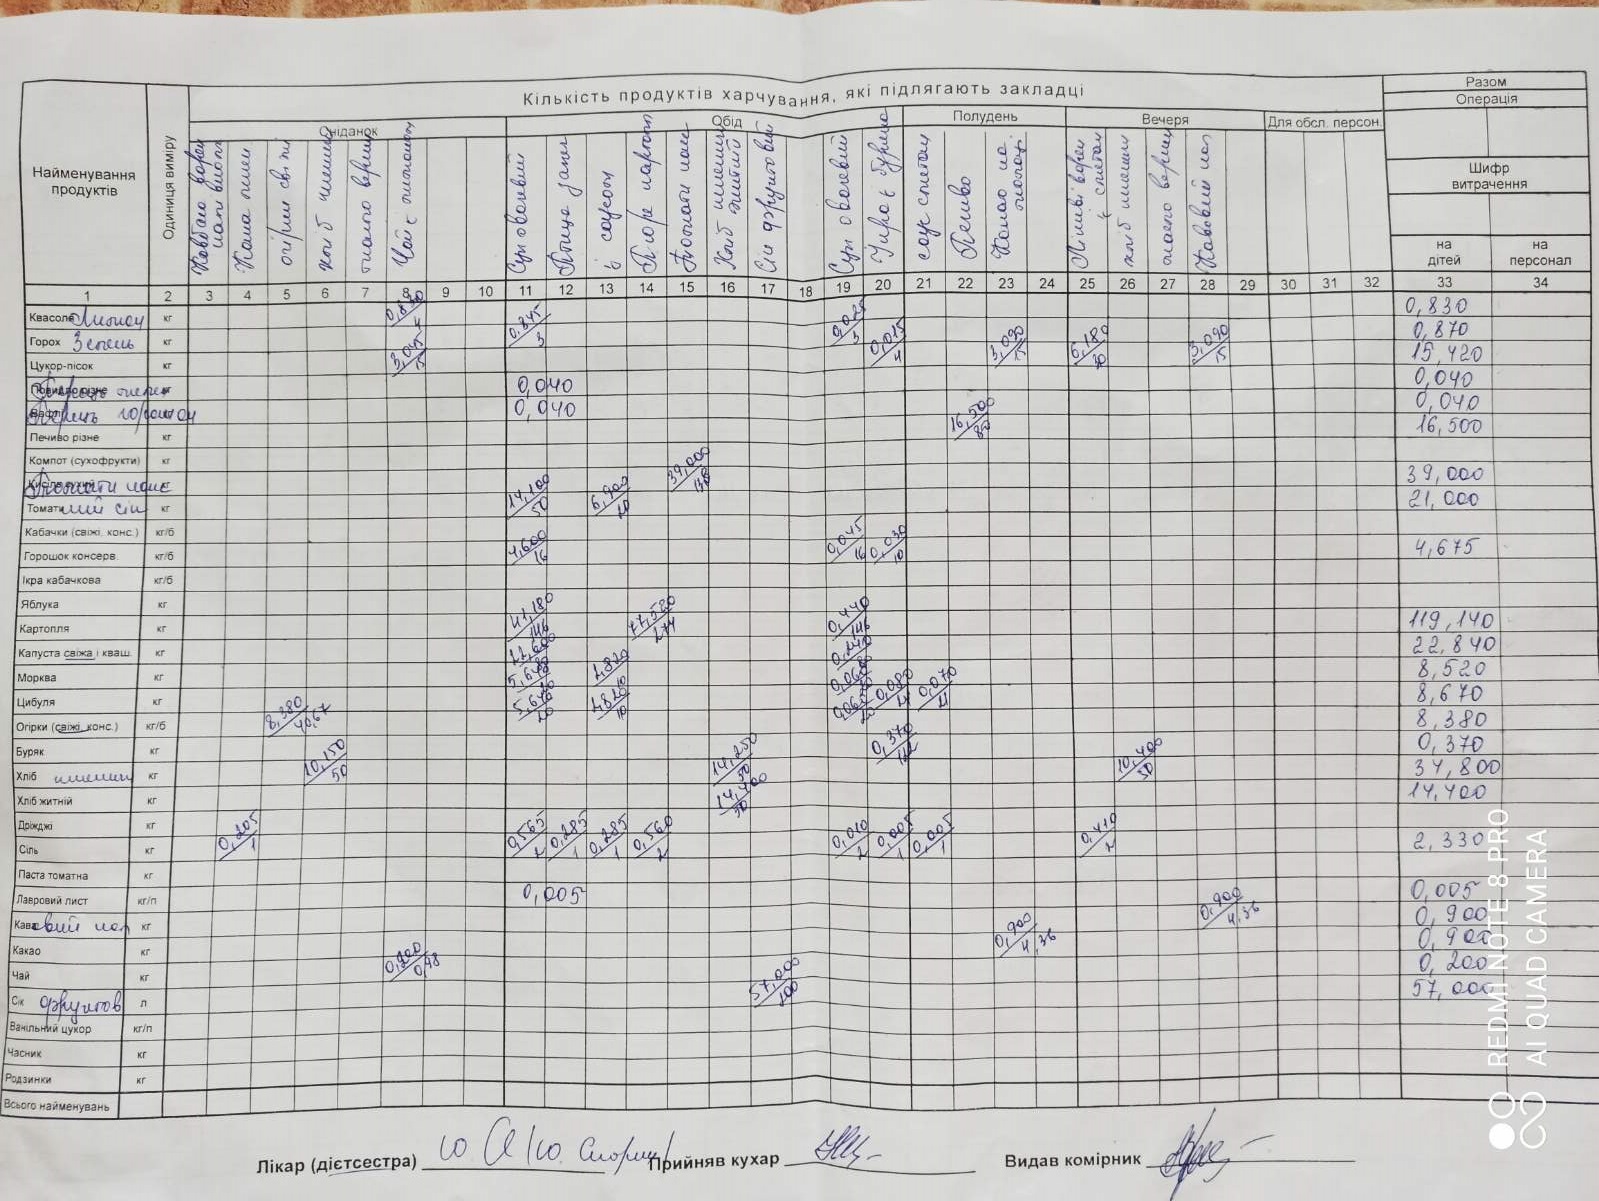 Кількість продуктів харчування, які підлягають закладці
Разом
Операція
Найменування продуктів
Одиниця виміру
Сніданок
Обід
Полудень
Вечеря
Для обсл. персон.
Шифр витрачення
на дітей
на персонал
Ковбаса варен
Каша пшен
огірки свіжі
хліб пшенич
Чай з лимоном
Суп овочевий
Птиця запеч
в соусом
Пюре картоп
Томати
Хліб пшенич житній
Сік фруктовий
Суп овочевий
соус сметан
Печиво
Какао на молоці
хліб пшенич
Кавовий нап
1 2 3 4 5 6 7 8 9 10 11 12 13 14 15 16 17 18 19 20 21 22 23 24 25 26 27 28 29 30 31 32 33 34
Квасоля Лимон кг 0,830/4 0,830
Горох Зелень кг 0,845/3 0,025/3 0,870
Цукор-пісок кг 3,045/15 0,015/4 3,090/15 6,180/30 3,090/15 15,420
кг 0,040 0,040
Перець горошок 0,040 0,040
Печиво різне кг 16,500/80 16,500
Компот (сухофрукти) кг
Томати кг 39,000/138 39,000
Томатний сік кг 14,100/50 6,900/20 21,000
Кабачки (свіжі, конс.) кг/б
Горошок консерв. кг/б 4,600/16 0,045/16 0,030/10 4,675
Ікра кабачкова кг/б
Яблука кг
Картопля кг 41,180/146 77,520/274 0,440/146 119,140
Капуста свіжа і кваш. кг 22,600 0,240 22,840
Морква кг 5,640/20 2,820/10 0,060 8,520
Цибуля кг 5,640/20 2,820/10 0,060/20 0,080/4 0,070/4 8,670
Огірки (свіжі, конс.) кг/б 8,380/40,67 8,380
Буряк кг 0,370 0,370
Хліб пшенич кг 10,150/50 14,250/50 10,400/50 34,800
Хліб житній кг 14,400/50 14,400
Дріжджі кг
Сіль кг 0,205/1 0,565/2 0,285/1 0,285/1 0,560/2 0,010/2 0,005/1 0,005/1 0,410/2 2,330
Паста томатна кг
Лавровий лист кг/п 0,005 0,005
Кавовий нап кг 0,900/4,36 0,900
Какао кг 0,900/4,36 0,900
Чай кг 0,200/0,98 0,200
Сік фруктов л 57,000/200 57,000
Ванільний цукор кг/п
Часник кг
Родзинки кг
Всього найменувань
Лікар (дієтсестра)
Прийняв кухар
Видав комірник
REDMI NOTE 8 PRO
AI QUAD CAMERA